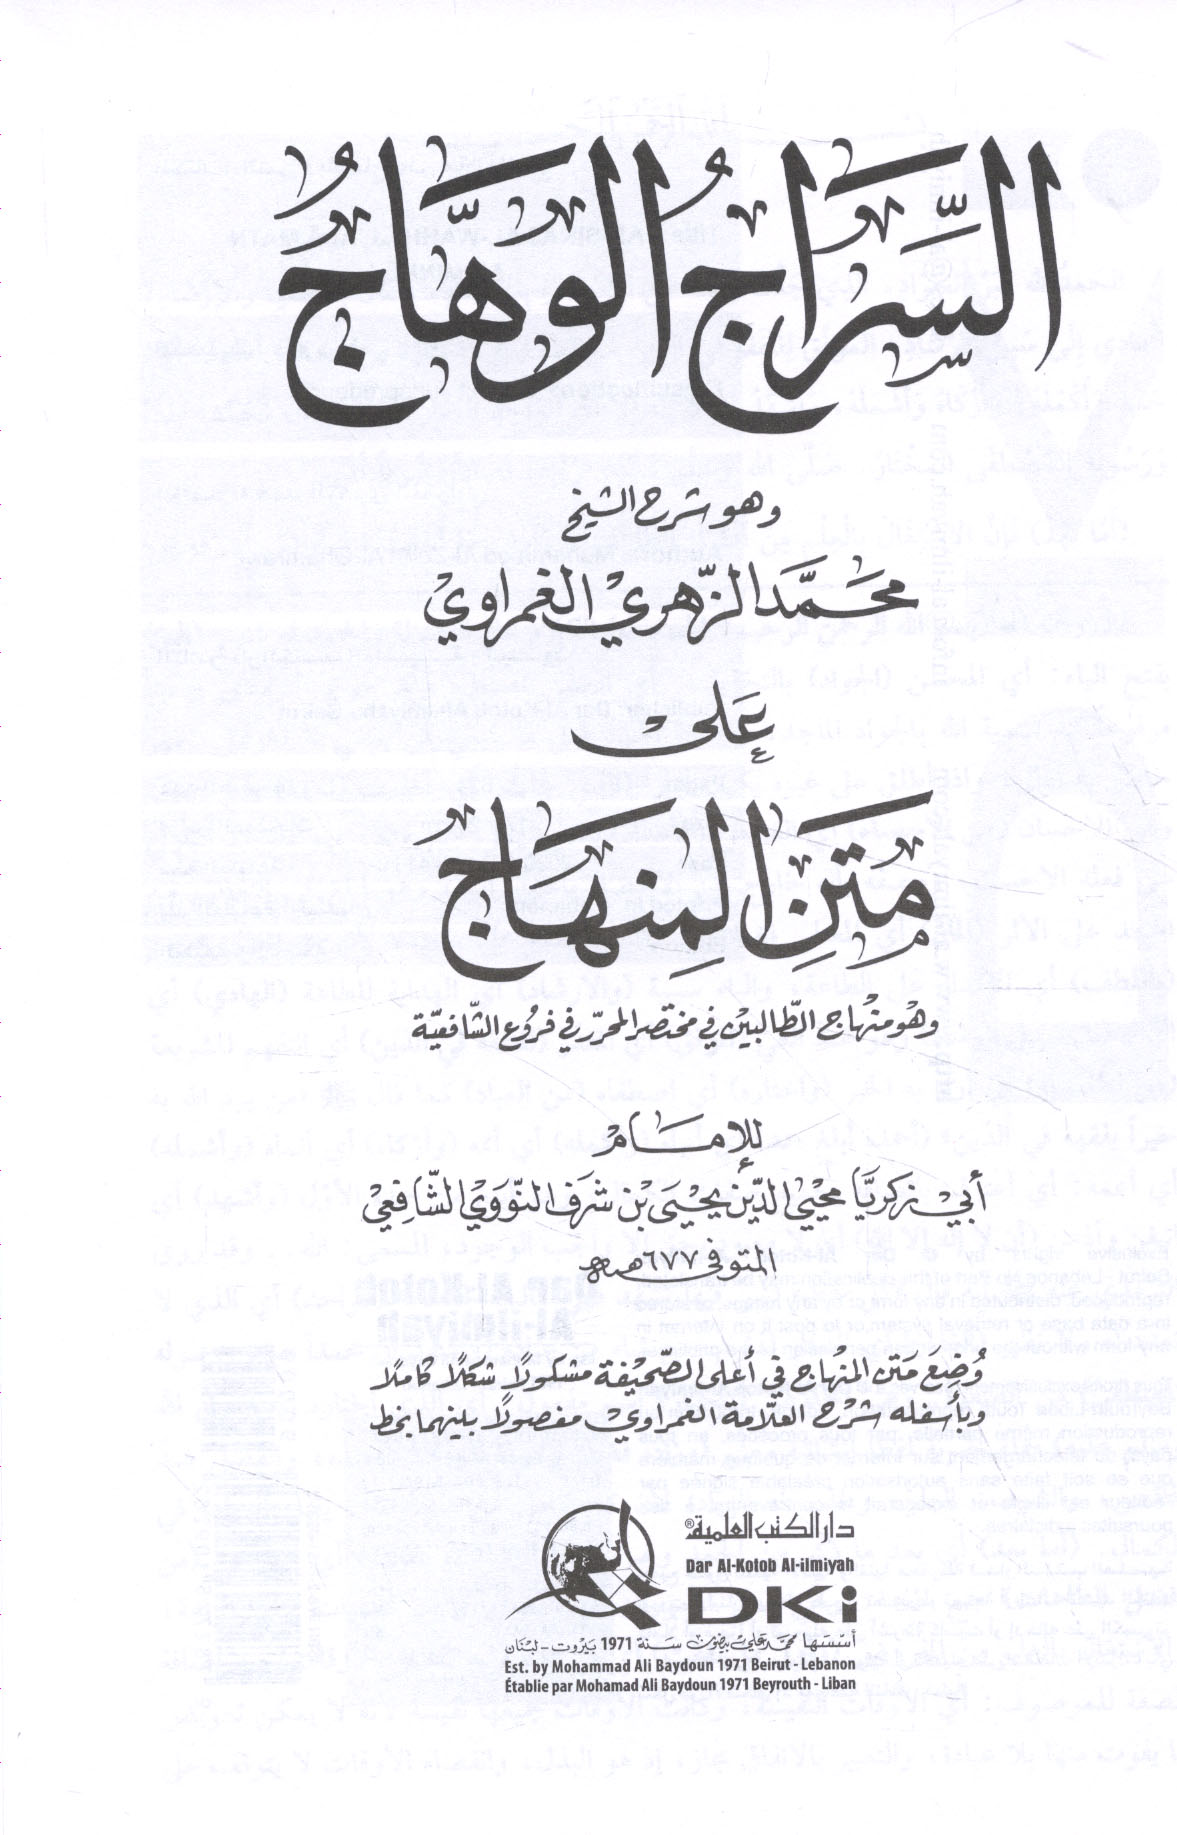 السَّرَاجُ الوَهَّاجُ
وهو شرح الشيخ
محَمَّد الزّهري الغمراوي
عَلى
مَتَنِ المِنهَاجُ
وهو منهاج الطّالبين في مختصر المحرّر في فروع الشافعيّة
للإمام
أبي زكريَّا محيي الدّين يحيى بن شرف النّووي الشّافعي
المتوفى ٦٧٧ هـ
وُضِع مَتن المنهاج في أعلى الصّحيفة مشكولاً شكلاً كاملاً
وبأسفله شرح العلّامة الغمراوي مفصولاً بينهما بخط
دار الكتب العلمية®
Dar Al-Kotob Al-ilmiyah
DKi
أسّسَها محمّد علي بيضون سَنة 1971 بَيروت - لبنَان
Est. by Mohammad Ali Baydoun 1971 Beirut - Lebanon
Établie par Mohamad Ali Baydoun 1971 Beyrouth - Liban